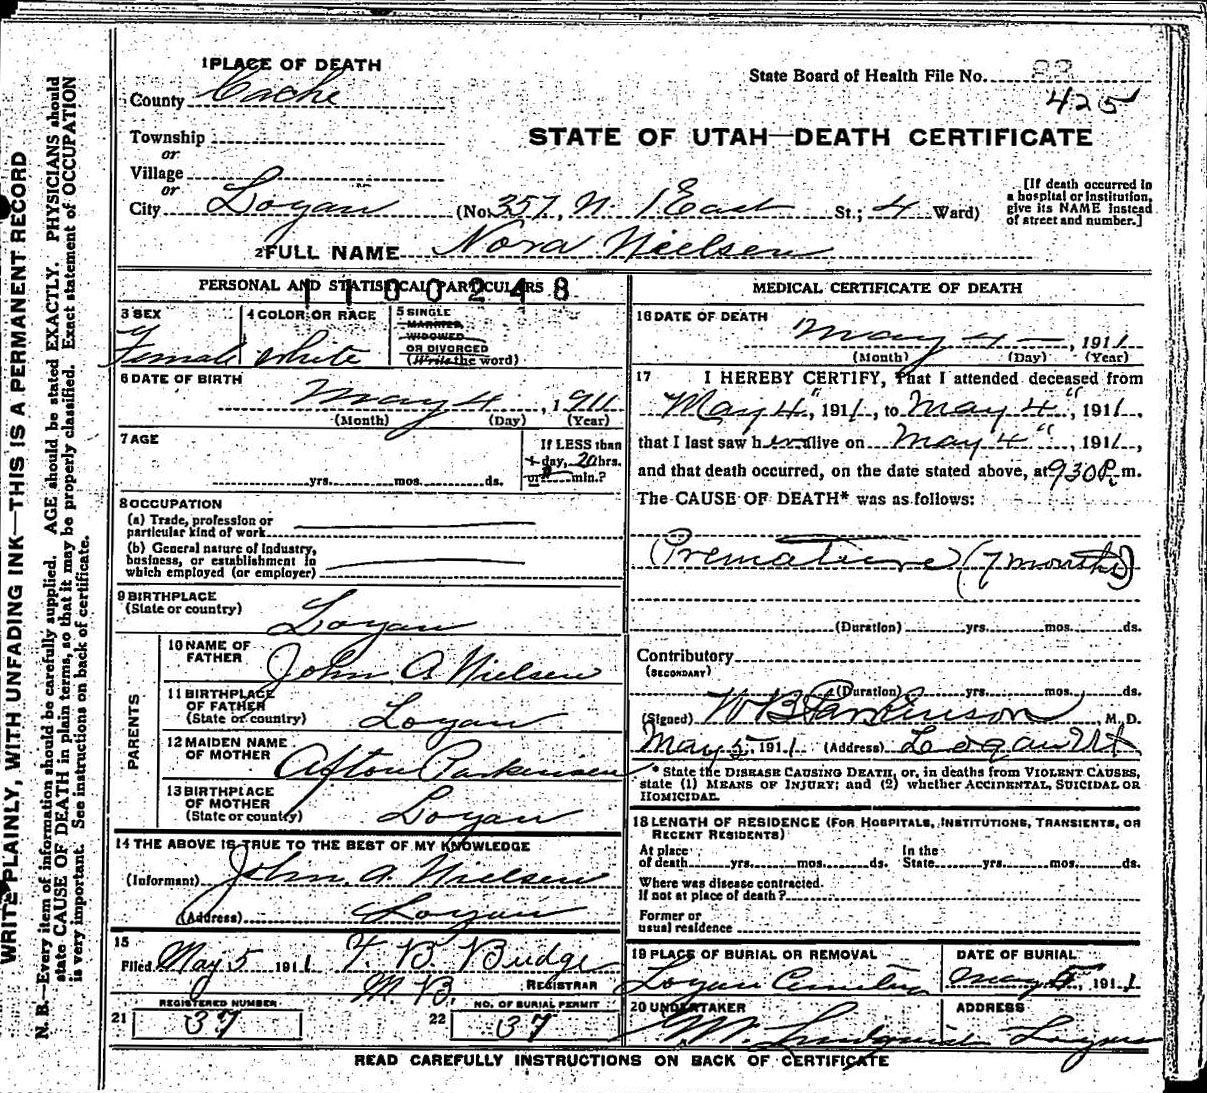 1 PLACE OF DEATH
County Cache
State Board of Health File No. 83
425
Township
or
Village
or
City Logan (No. 357, N. 1 East St.; 4 Ward)
STATE OF UTAH—DEATH CERTIFICATE
[If death occurred in
a hospital or institution,
give its NAME instead
of street and number.]
2 FULL NAME Nora Nielsen
PERSONAL AND STATISTICAL PARTICULARS
1100248
3 SEX
Female
4 COLOR OR RACE
White
5 SINGLE
MARRIED,
WIDOWED
OR DIVORCED
(Write the word)
6 DATE OF BIRTH
May 4, 1911
(Month) (Day) (Year)
7 AGE
yrs. mos. ds.
If LESS than
1 day, 20 hrs.
or min.?
8 OCCUPATION
(a) Trade, profession or
particular kind of work
(b) General nature of industry,
business, or establishment in
which employed (or employer)
9 BIRTHPLACE
(State or country) Logan
PARENTS
10 NAME OF
FATHER John A Nielsen
11 BIRTHPLACE
OF FATHER
(State or country) Logan
12 MAIDEN NAME
OF MOTHER Afton Parkinson
13 BIRTHPLACE
OF MOTHER
(State or country) Logan
14 THE ABOVE IS TRUE TO THE BEST OF MY KNOWLEDGE
(Informant) John A. Nielsen
(Address) Logan
15
Filed May 5 1911 F. B. Budge
M.B. REGISTRAR
REGISTERED NUMBER
21 37
NO. OF BURIAL PERMIT
22 37
MEDICAL CERTIFICATE OF DEATH
16 DATE OF DEATH
May 4 —, 1911
(Month) (Day) (Year)
17 I HEREBY CERTIFY, That I attended deceased from
May 4", 1911, to May 4", 1911,
that I last saw her alive on May 4", 1911,
and that death occurred, on the date stated above, at 930 P. m.
The CAUSE OF DEATH* was as follows:
Premature (7 months)
(Duration) yrs. mos. ds.
Contributory
(SECONDARY)
(Duration) yrs. mos. ds.
(Signed) W B Parkinson, M. D.
May 5, 1911 (Address) Logan Ut
* State the DISEASE CAUSING DEATH, or, in deaths from VIOLENT CAUSES,
state (1) MEANS OF INJURY; and (2) whether ACCIDENTAL, SUICIDAL OR
HOMICIDAL.
18 LENGTH OF RESIDENCE (FOR HOSPITALS, INSTITUTIONS, TRANSIENTS, OR
RECENT RESIDENTS)
At place In the
of death yrs. mos. ds. State yrs. mos. ds.
Where was disease contracted.
If not at place of death?
Former or
usual residence
19 PLACE OF BURIAL OR REMOVAL
Logan Cemetery
DATE OF BURIAL
May 5, 1911
20 UNDERTAKER
Lindquist
ADDRESS
Logan
READ CAREFULLY INSTRUCTIONS ON BACK OF CERTIFICATE
WRITE PLAINLY, WITH UNFADING INK—THIS IS A PERMANENT RECORD
N. B.—Every item of information should be carefully supplied. AGE should be stated EXACTLY. PHYSICIANS should
state CAUSE OF DEATH in plain terms, so that it may be properly classified. Exact statement of OCCUPATION
is very important. See instructions on back of certificate.